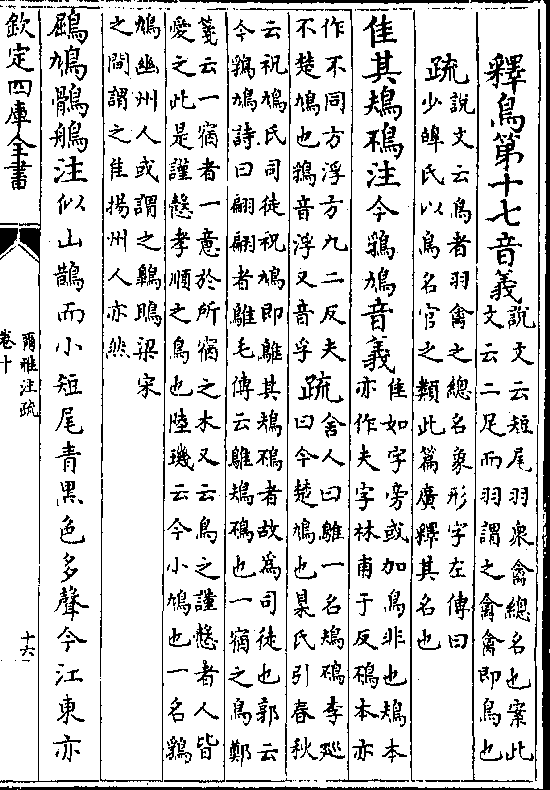 釋鳥第十七音義說文云短尾羽衆禽總名也案此
文云二足而羽謂之禽禽即鳥也
疏說文云鳥者羽禽之總名象形字左傳曰
少皥氏以鳥名官之類此篇廣釋其名也
隹其鳺鴀注今䳕鳩音義隹如字旁或加鳥非也鳺本
亦作夫字林甫于反鴀本亦
作不同方浮方九二反夫
不楚鳩也䳕音浮又音孚疏舍人曰鵻一名鳺鴀李廵
曰今楚鳩也某氏引春秋
云祝鳩氏司徒祝鳩即鵻其鳺鴀者故爲司徒也郭云
今䳕鳩詩曰翩翩者鵻毛傳云鵻鳺鴀也一宿之鳥鄭
箋云一宿者一意於所宿之木又云鳥之謹慤者人皆
愛之此是謹慤孝順之鳥也陸璣云今小鳩也一名䳕
鳩幽州人或謂之鷱鵙梁宋
之間謂之隹揚州人亦然
鶌鳩鶻鵃注似山鵲而小短尾青黑色多聲今江東亦
欽定四庫全書
爾雅注疏
卷十
十六